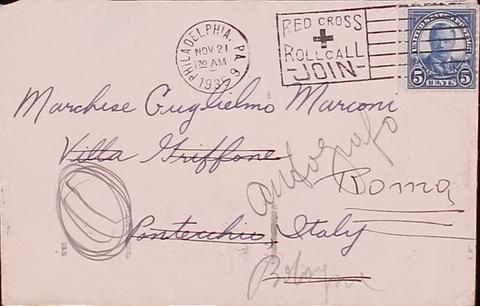 PHILADELPHIA, PA. 6
NOV 21
130 AM
1932
RED CROSS
ROLL CALL
JOIN
UNITED STATES POSTAGE
5 CENTS 5
Marchese Guglielmo Marconi
Villa Griffone
autografo
Roma
Pontecchio, Italy
Bologna